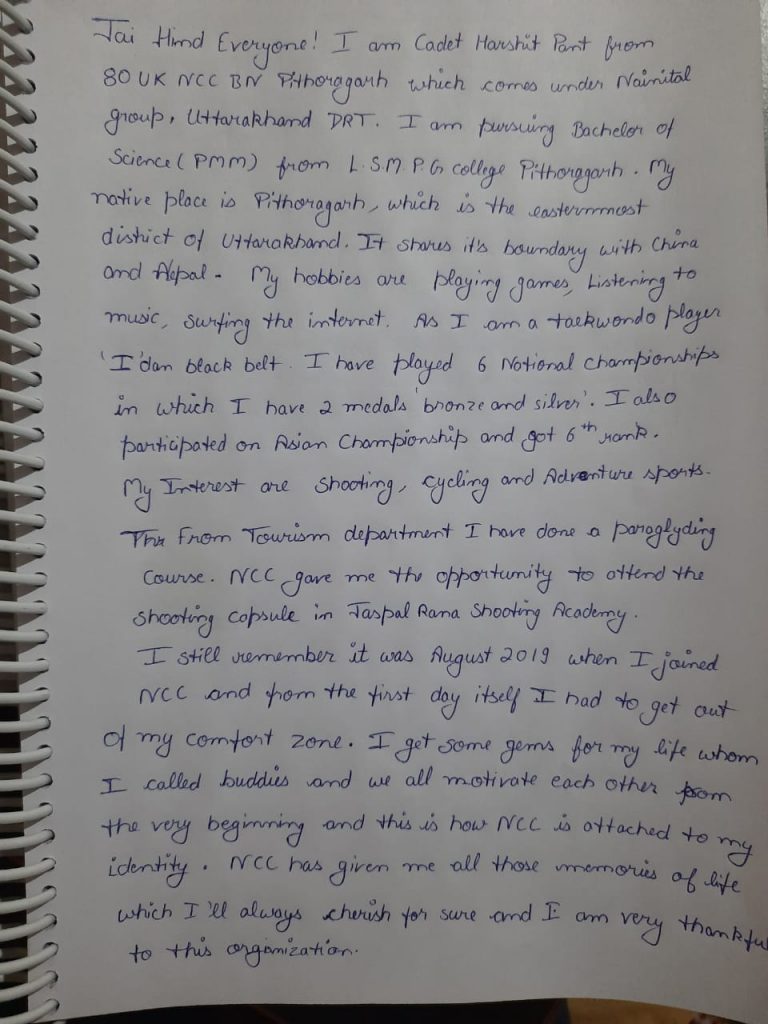 Jai Hind Everyone! I am Cadet Harshit Pant from
80 UK NCC BN Pithoragarh which comes under Nainital
group, Uttarakhand DRT. I am pursuing Bachelor of
Science (PMM) from L.S.M.P.G college Pithoragarh. My
native place is Pithoragarh, which is the easternmost
district of Uttarakhand. It shares it's boundary with China
and Nepal. My hobbies are playing games, Listening to
music, surfing the internet. As I am a taekwondo player
'I'dan black belt. I have played 6 National Championships
in which I have 2 medals 'bronze and silver'. I also
participated on Asian Championship and got 6th rank.
My Interest are Shooting, cycling and Adventure sports.
From Tourism department I have done a paraglyding
course. NCC gave me the opportunity to attend the
shooting capsule in Jaspal Rana Shooting Academy.
I still remember it was August 2019 when I joined
NCC and from the first day itself I had to get out
of my comfort zone. I get some gems for my life whom
I called buddies and we all motivate each other from
the very beginning and this is how NCC is attached to my
identity. NCC has given me all those memories of life
which I'll always cherish for sure and I am very thankful
to this organization.